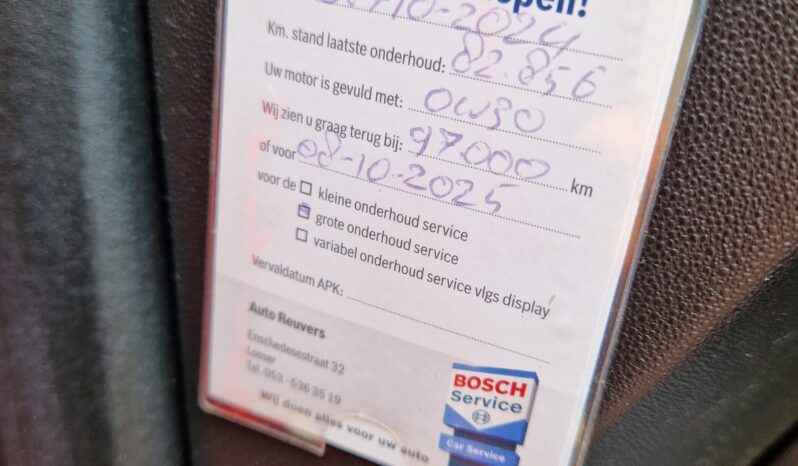 -10-2024
Km. stand laatste onderhoud: 82.856
Uw motor is gevuld met: 0W30
Wij zien u graag terug bij: 97000 km
of voor 08-10-2025
voor de kleine onderhoud service
grote onderhoud service
variabel onderhoud service vlgs display
Vervaldatum APK:
Auto Reuvers
Enschedesestraat 32
Losser
Tel. 053 - 536 35 19
Wij doen alles voor uw auto
BOSCH
Service
Car Service